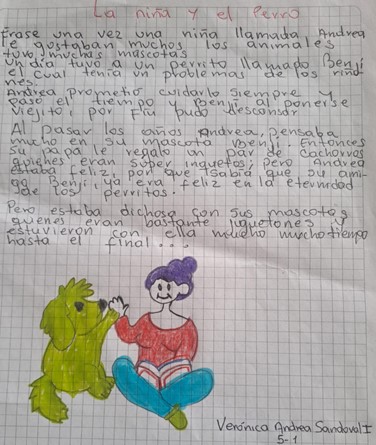 La niña y el Perro
Erase una vez una niña llamada Andrea
le gustaban muchos los animales
tuvo muchas mascotas
Un dia tuvo a un perrito llamado Benji
el cual tenía un problemas de los riño-
nes.
Andrea prometio cuidarlo siempre y
paso el tiempo y Benji al ponerse
viejito, por fin pudo descansar
Al pasar los años Andrea, pensaba
mucho en su mascota Benji. Entonces
su papa le regalo un par de cachorros
quienes eran super inquetos; pero Andrea
estaba feliz, por que sabia que su ami-
go Benji, ya era feliz en la eternidad
de los perritos.
Pero estaba dichosa con sus mascotas
quenes eran bastante juguetones y
estuvieron con ella mucho muchotiempo
hasta el final...
Verónica Andrea Sandoval I
5-1